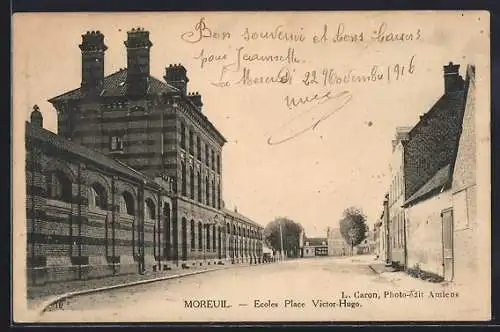 Bon souvenir et bons baisers
pour Jeannette
Le Mercredi 22 Novembre 1916
L. Caron, Photo-édit Amiens
MOREUIL. — Ecoles Place Victor-Hugo.